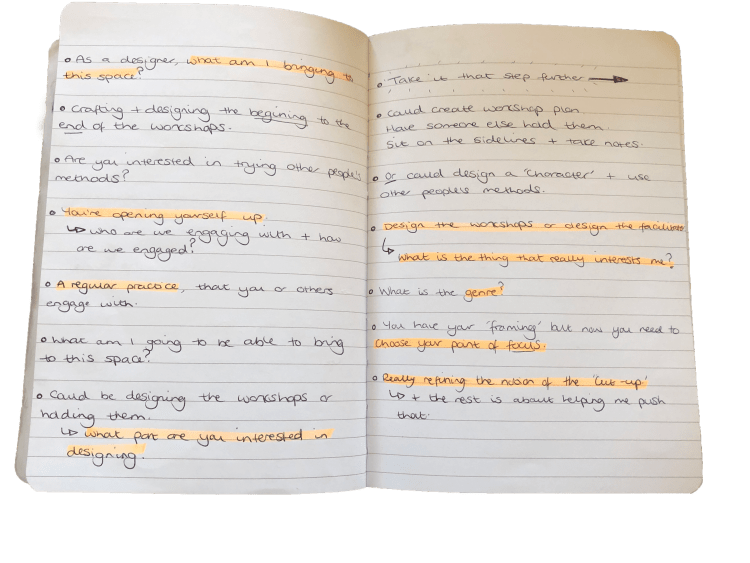 • As a designer, what am I bringing to
this space?
• Crafting + designing the begining to the
end of the workshops.
• Are you interested in trying other people's
methods?
• You're opening yourself up.
↳ who are we engaging with + how
are we engaged?
• A regular practice, that you or others
engage with.
• What am I going to be able to bring
to this space?
• Could be designing the workshops or
holding them.
↳ what part are you interested in
designing.
• Take it that step further →
• Could create workshop plan.
Have someone else hold them.
Sit on the sidelines + take notes.
• Or could design a 'character' + use
other people's methods.
• Design the workshops or design the facilitator
↳ What is the thing that really interests me?
• What is the genre?
• You have your 'framing' but now you need to
choose your point of focus.
• Really refining the notion of the 'cut-up'
↳ + the rest is about helping me push
that.